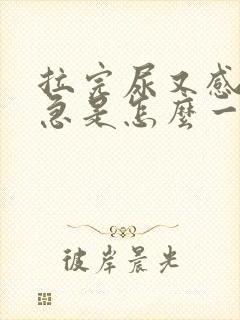 拉完尿又感
急是怎麼一
彼岸晨光